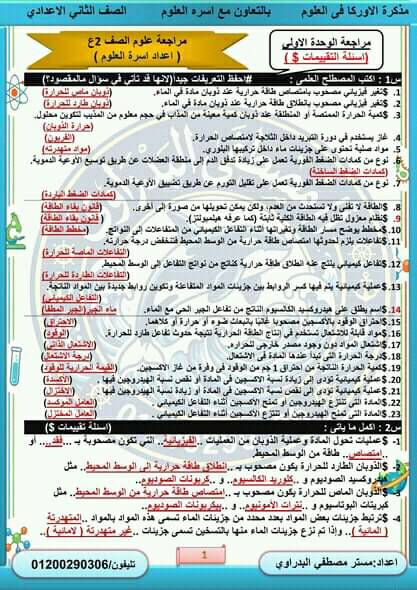 مذكرة الاوركا فى العلوم بالتعاون مع اسره العلوم الصف الثاني الاعدادي
مراجعة علوم الصف 2ع
( اعداد اسرة العلوم )
مراجعة الوحدة الاولي
(اسئلة التقييمات $ )
س1 : اكتب المصطلح العلمى : #احفظ التعريفات جيدا(لانها قد تأتي في سؤال مالمقصود؟)
1- $تغير فيزيائي مصحوب بامتصاص طاقة حرارية عند ذوبان مادة في الماء. (ذوبان ماص للحرارة)
2- $تغير فيزيائي مصحوب بانطلاق طاقة حرارية عند ذوبان مادة في الماء. (ذوبان طارد للحرارة)
3- $كمية الحرارة الممتصة أو المنطلقة عند ذوبان كمية معينة من المذاب في حجم معلوم من المذيب لتكوين محلول.
(حرارة الذوبان)
4- غاز يستخدم في دورة التبريد داخل الثلاجة لامتصاص الحرارة. (الفريون)
5- مواد صلبة تحتوى على جزيئات ماء داخل تركيبها البلوري. (مواد متهدرته)
6- نوع من كمادات الضغط الفورية تعمل على زيادة تدفق الدم إلى منطقة العضلات عن طريق توسيع الأوعية الدموية.
(كمادات الضغط الساخنة)
7- نوع من كمادات الضغط الفورية تعمل على تقليل التورم عن طريق تضييق الأوعية الدموية.
(كمادات الضغط الباردة)
8- $الطاقة لا تفنى ولا تستحدث من العدم، ولكن يمكن تحويلها من صورة إلى أخرى. (قانون بقاء الطاقة)
9- $نظام معزول تظل فيه الطاقة الكلية ثابتة (كما عرفه هيلمهولتز). (قانون بقاء الطاقة)
10- $مخطط يوضح مسار الطاقة وتغيراتها أثناء التفاعل الكيميائي من المتفاعلات إلى النواتج. (مخطط الطاقة)
11- $تفاعلات يلزم لحدوثها امتصاص طاقة حرارية من الوسط المحيط فتنخفض درجة حرارته.
(التفاعلات الماصة للحرارة)
12- $تفاعل كيميائي ينتج عنه انطلاق طاقة حرارية كناتج من نواتج التفاعل إلى الوسط المحيط.
(التفاعلات الطاردة للحرارة)
13- $عملية كيميائية يتم فيها كسر الروابط بين جزيئات المواد المتفاعلة وتكوين روابط جديدة بين المواد الناتجة.
(التفاعل الكيميائي)
14- $اسم يطلق علي هيدروكسيد الكالسيوم الناتج من تفاعل الجير الحي مع الماء. (ماء الجير(الجير المطفأ)
15- $احتراق الوقود بالأكسجين مصحوبا غالبا بانبعاث ضوء أو حرارة أو كلاهما. (الاحتراق)
16- $مواد قابلة للاشتعال تستخدم في إنتاج الطاقة الحرارية نتيجة حدوث تفاعل طارد للحرارة. (الوقود)
17- $اشتعال المواد دون وجود مصدر خارجي للحرارة. (الاشتعال الذاتي)
18- $درجة الحرارة التى تبدأ عندها المادة فى الاشتعال. (درجة الاشتعال)
19- $كمية الحرارة الناتجة من احتراق 1 جم من الوقود في وفرة من غاز الأكسجين. (القيمة الحرارية للوقود)
20- $عملية كيميائية تؤدي إلى زيادة نسبة الأكسجين في المادة أو نقص نسبة الهيدروجين فيها. (الأكسدة)
21- $عملية كيميائية تؤدي إلى نقص نسبة الأكسجين في المادة أو زيادة نسبة الهيدروجين فيها. (الاختزال)
22- $المادة التي تنتزع الهيدروجين أو تمنح الأكسجين أثناء التفاعل الكيميائي. (العامل المؤكسد)
23- $المادة التي تمنح الهيدروجين أو تنتزع الأكسجين أثناء التفاعل الكيميائي. (العامل المختزل)
س2 : اكمل ما ياتي: (اسئلة تقييمات $)
1- $عمليات تحول المادة وعملية الذوبان من العمليات ..الفيزيائية.. التي تكون مصحوبة بـ ...فقد.. أو
..امتصاص.. طاقة من الوسط المحيط.
2- $الذوبان الطارد للحرارة يكون مصحوب بـ ..انطلاق طاقة حرارية الى الوسط المحيط.. مثل
هيدروكسيد الصوديوم و ..كلوريد الكالسيوم.. و ..كربونات الصوديوم..
3- $الذوبان الماص للحرارة يكون مصحوب بـ ..امتصاص طاقة حرارية من الوسط المحيط.. مثل
كبريتات البوتاسيوم و ..نترات الأمونيوم.. و ..بيكربونات الصوديوم..
4- $ترتبط جزيئات بعض المواد بعدد محدد من جزيئات الماء تسمى هذه المواد بالمواد ..المتهدرتة
( المائية ).. ، وإذا تم نزع جزيئات الماء منها بالتسخين تسمى جزيئات ..غير متهدرتة ( لامائية )..
اعداد:مستر مصطفي البدراوي
1
تليفون/01200290306